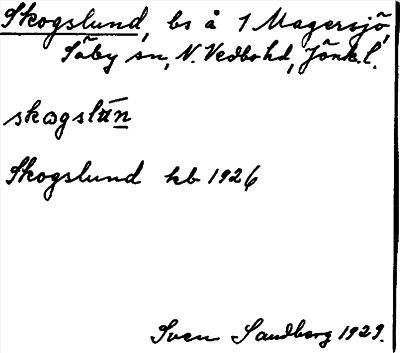 Skogslund, bs å 1 Magersjö,
Säby sn, N. Vedbo hd, Jönk.l.
skogslun
Skogslund kb 1926
Sven Sandberg 1929.